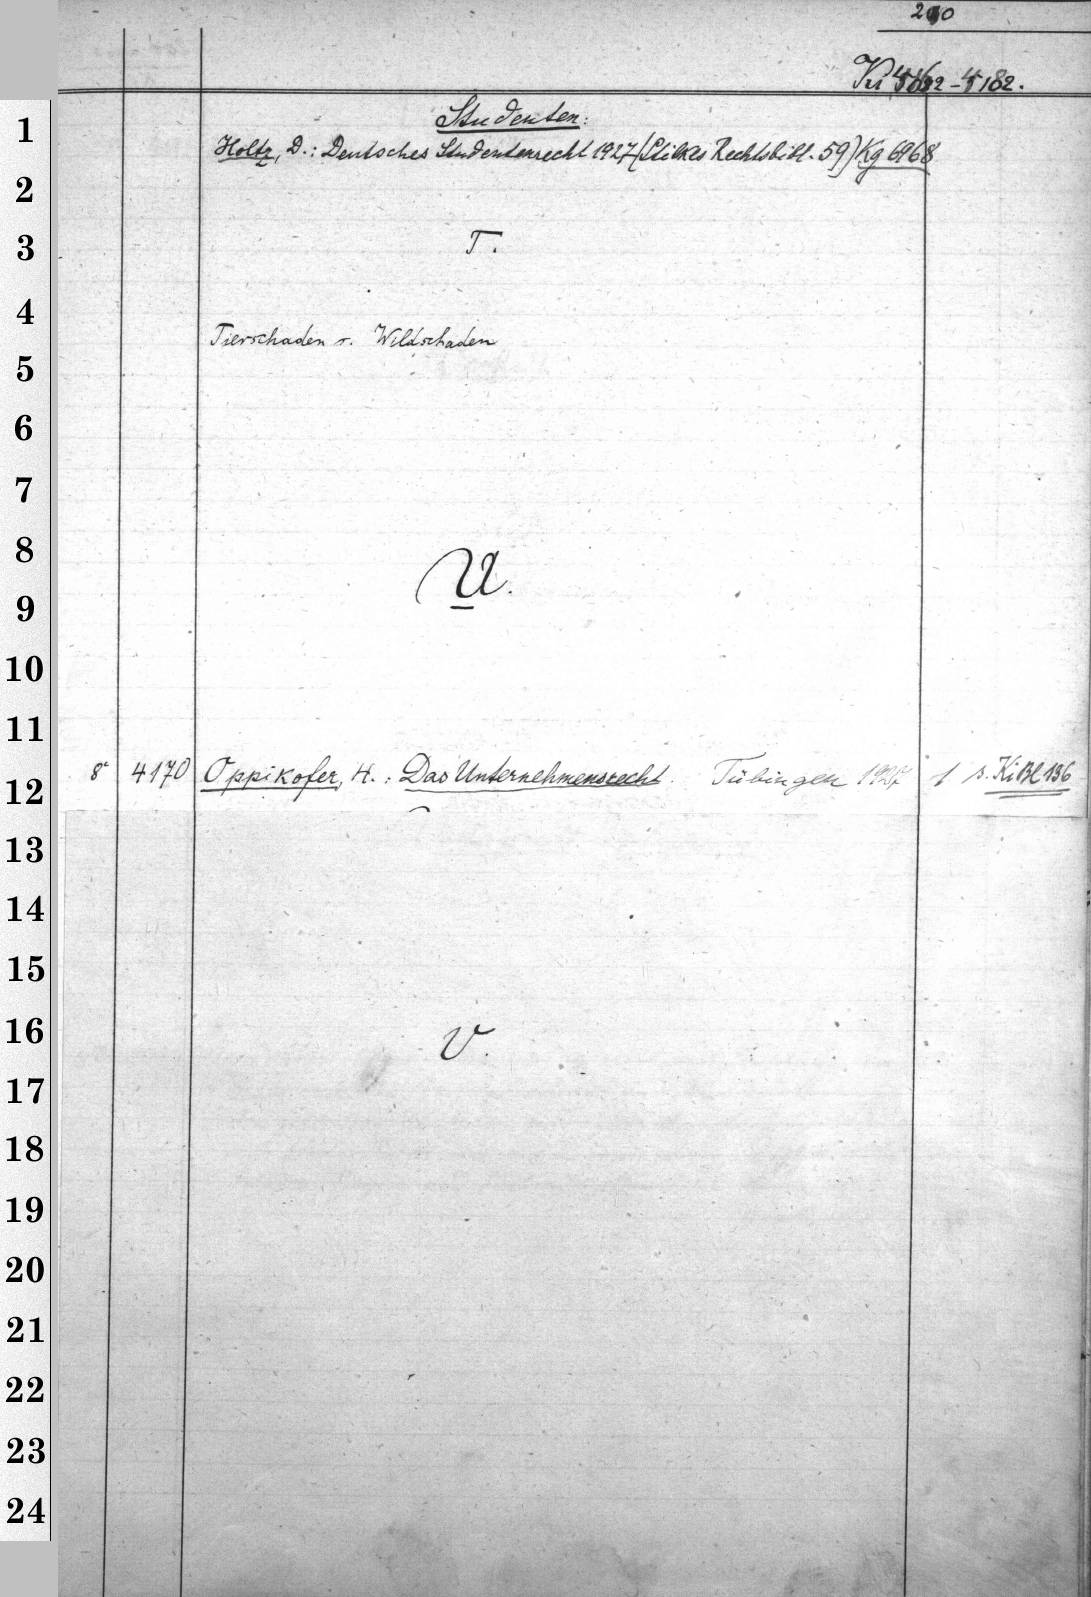 Studenten:
Holtz, D.: Deutsches Studentenrecht 1927 (Stilkes Rechtsbibl. 59) Kg 6968
T.
Tierschaden s. Wildschaden
U.
8° 4170 Oppikofer, H.: Das Unternehmensrecht. Tübingen 1927 1 s. Ki Bl 136
V.
1
2
3
4
5
6
7
8
9
10
11
12
13
14
15
16
17
18
19
20
21
22
23
24